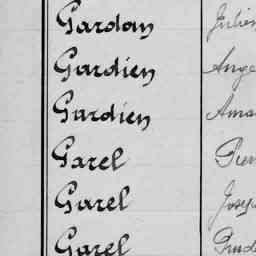 Gardon Julien
Gardien Ang
Gardien Ama
Garel Pier
Garel Josep
Garel Prude